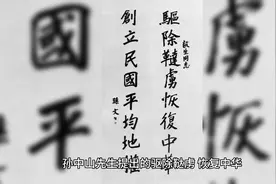 敬生同志
驅除韃虜恢復中
創立民國平均地權
孫文
國平
虜恢
孙中山先生提出的驱除鞑虏 恢复中华